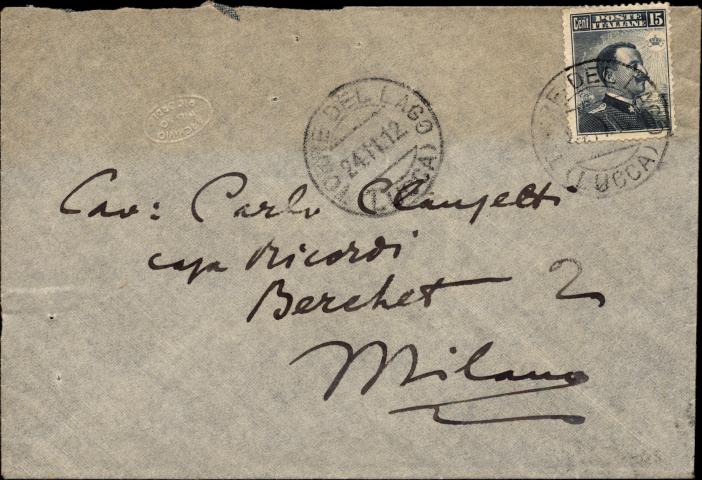 Cent 15
POSTE
ITALIANE
TORRE DEL LAGO
24.11.12
(LUCCA)
TORRE DEL LAGO
(LUCCA)
ARCHIVIO
RICORDI
Cav: Carlo Clausetti
casa Ricordi
Berchet 2
Milano